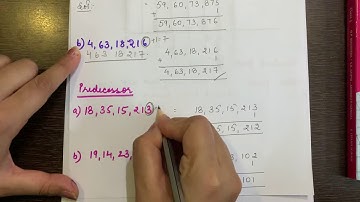 59,60,73,875
+ 1
59,60,73,876
b) 4,63,18,216
4 63 18 217
4,63,18,216
+ 1
4,63,18,217
Predecessor
a) 18,35,15,213 = 18,35,15,213
1
15,212
b) 19,14,23, 102
1
101